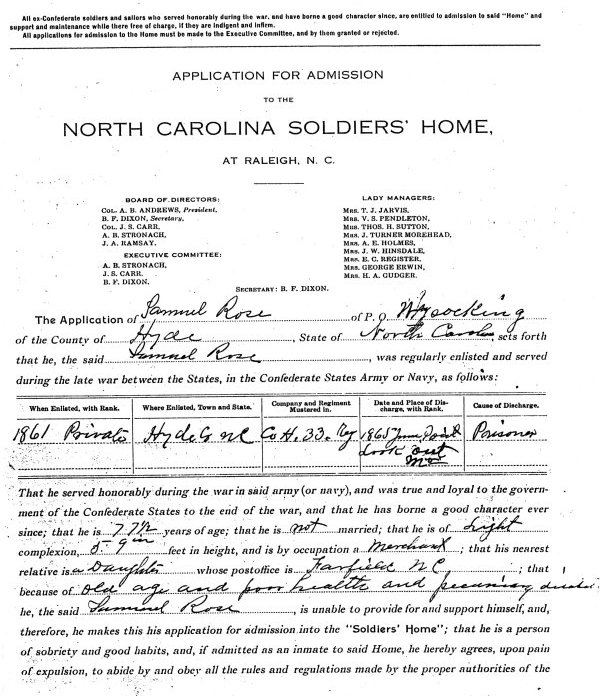 All ex-Confederate soldiers and sailors who served honorably during the war, and have borne a good character since, are entitled to admission to said "Home" and
support and maintenance while there free of charge, if they are indigent and infirm.
All applications for admission to the Home must be made to the Executive Committee, and by them granted or rejected.
APPLICATION FOR ADMISSION
TO THE
NORTH CAROLINA SOLDIERS' HOME,
AT RALEIGH, N. C.
BOARD OF DIRECTORS:
COL. A. B. ANDREWS, President,
B. F. DIXON, Secretary,
COL. J. S. CARR,
A. B. STRONACH,
J. A. RAMSAY.
EXECUTIVE COMMITTEE:
A. B. STRONACH,
J. S. CARR,
B. F. DIXON.
LADY MANAGERS:
MRS. T. J. JARVIS,
MRS. V. S. PENDLETON,
MRS. THOS. H. SUTTON,
MRS. J. TURNER MOREHEAD,
MRS. A. E. HOLMES,
MRS. J. W. HINSDALE,
MRS. E. C. REGISTER,
MRS. GEORGE ERWIN,
MRS. H. A. GUDGER.
SECRETARY: B. F. DIXON.
The Application of Samuel Rose of P. O. Wysocking
of the County of Hyde, State of North Carolina, sets forth
that he, the said Samuel Rose, was regularly enlisted and served
during the late war between the States, in the Confederate States Army or Navy, as follows:
When Enlisted, with Rank. Where Enlisted, Town and State. Company and Regiment Mustered in. Date and Place of Discharge, with Rank. Cause of Discharge.
1861 Private Hyde Co NC Co H. 33. Reg 1865 June Point Prisoner
Look out
That he served honorably during the war in said army (or navy), and was true and loyal to the govern-
ment of the Confederate States to the end of the war, and that he has borne a good character ever
since; that he is 77½ years of age; that he is not married; that he is of Light
complexion, 5-9 in feet in height, and is by occupation a Merchant; that his nearest
relative is a Daughter whose postoffice is Fairfield NC; that
because of old age and poor health and pecuniary
he, the said Samuel Rose, is unable to provide for and support himself, and,
therefore, he makes this his application for admission into the "Soldiers' Home"; that he is a person
of sobriety and good habits, and, if admitted as an inmate to said Home, he hereby agrees, upon pain
of expulsion, to abide by and obey all the rules and regulations made by the proper authorities of the